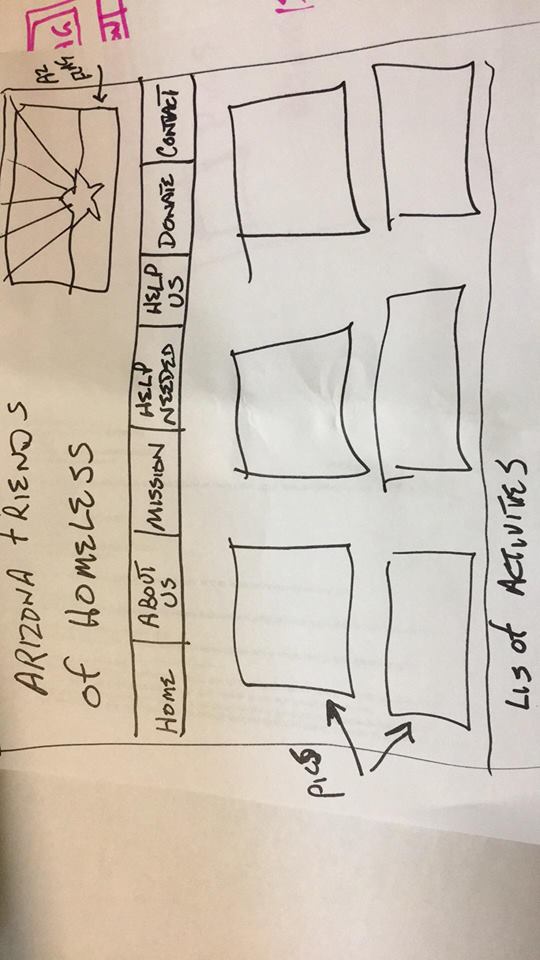 ARIZONA FRIENDS
of HOMELESS
AZ
FLAG
HOME
ABOUT
US
MISSION
HELP
NEEDED
HELP
US
DONATE
CONTACT
PICS
LIS of ACTIVITIES